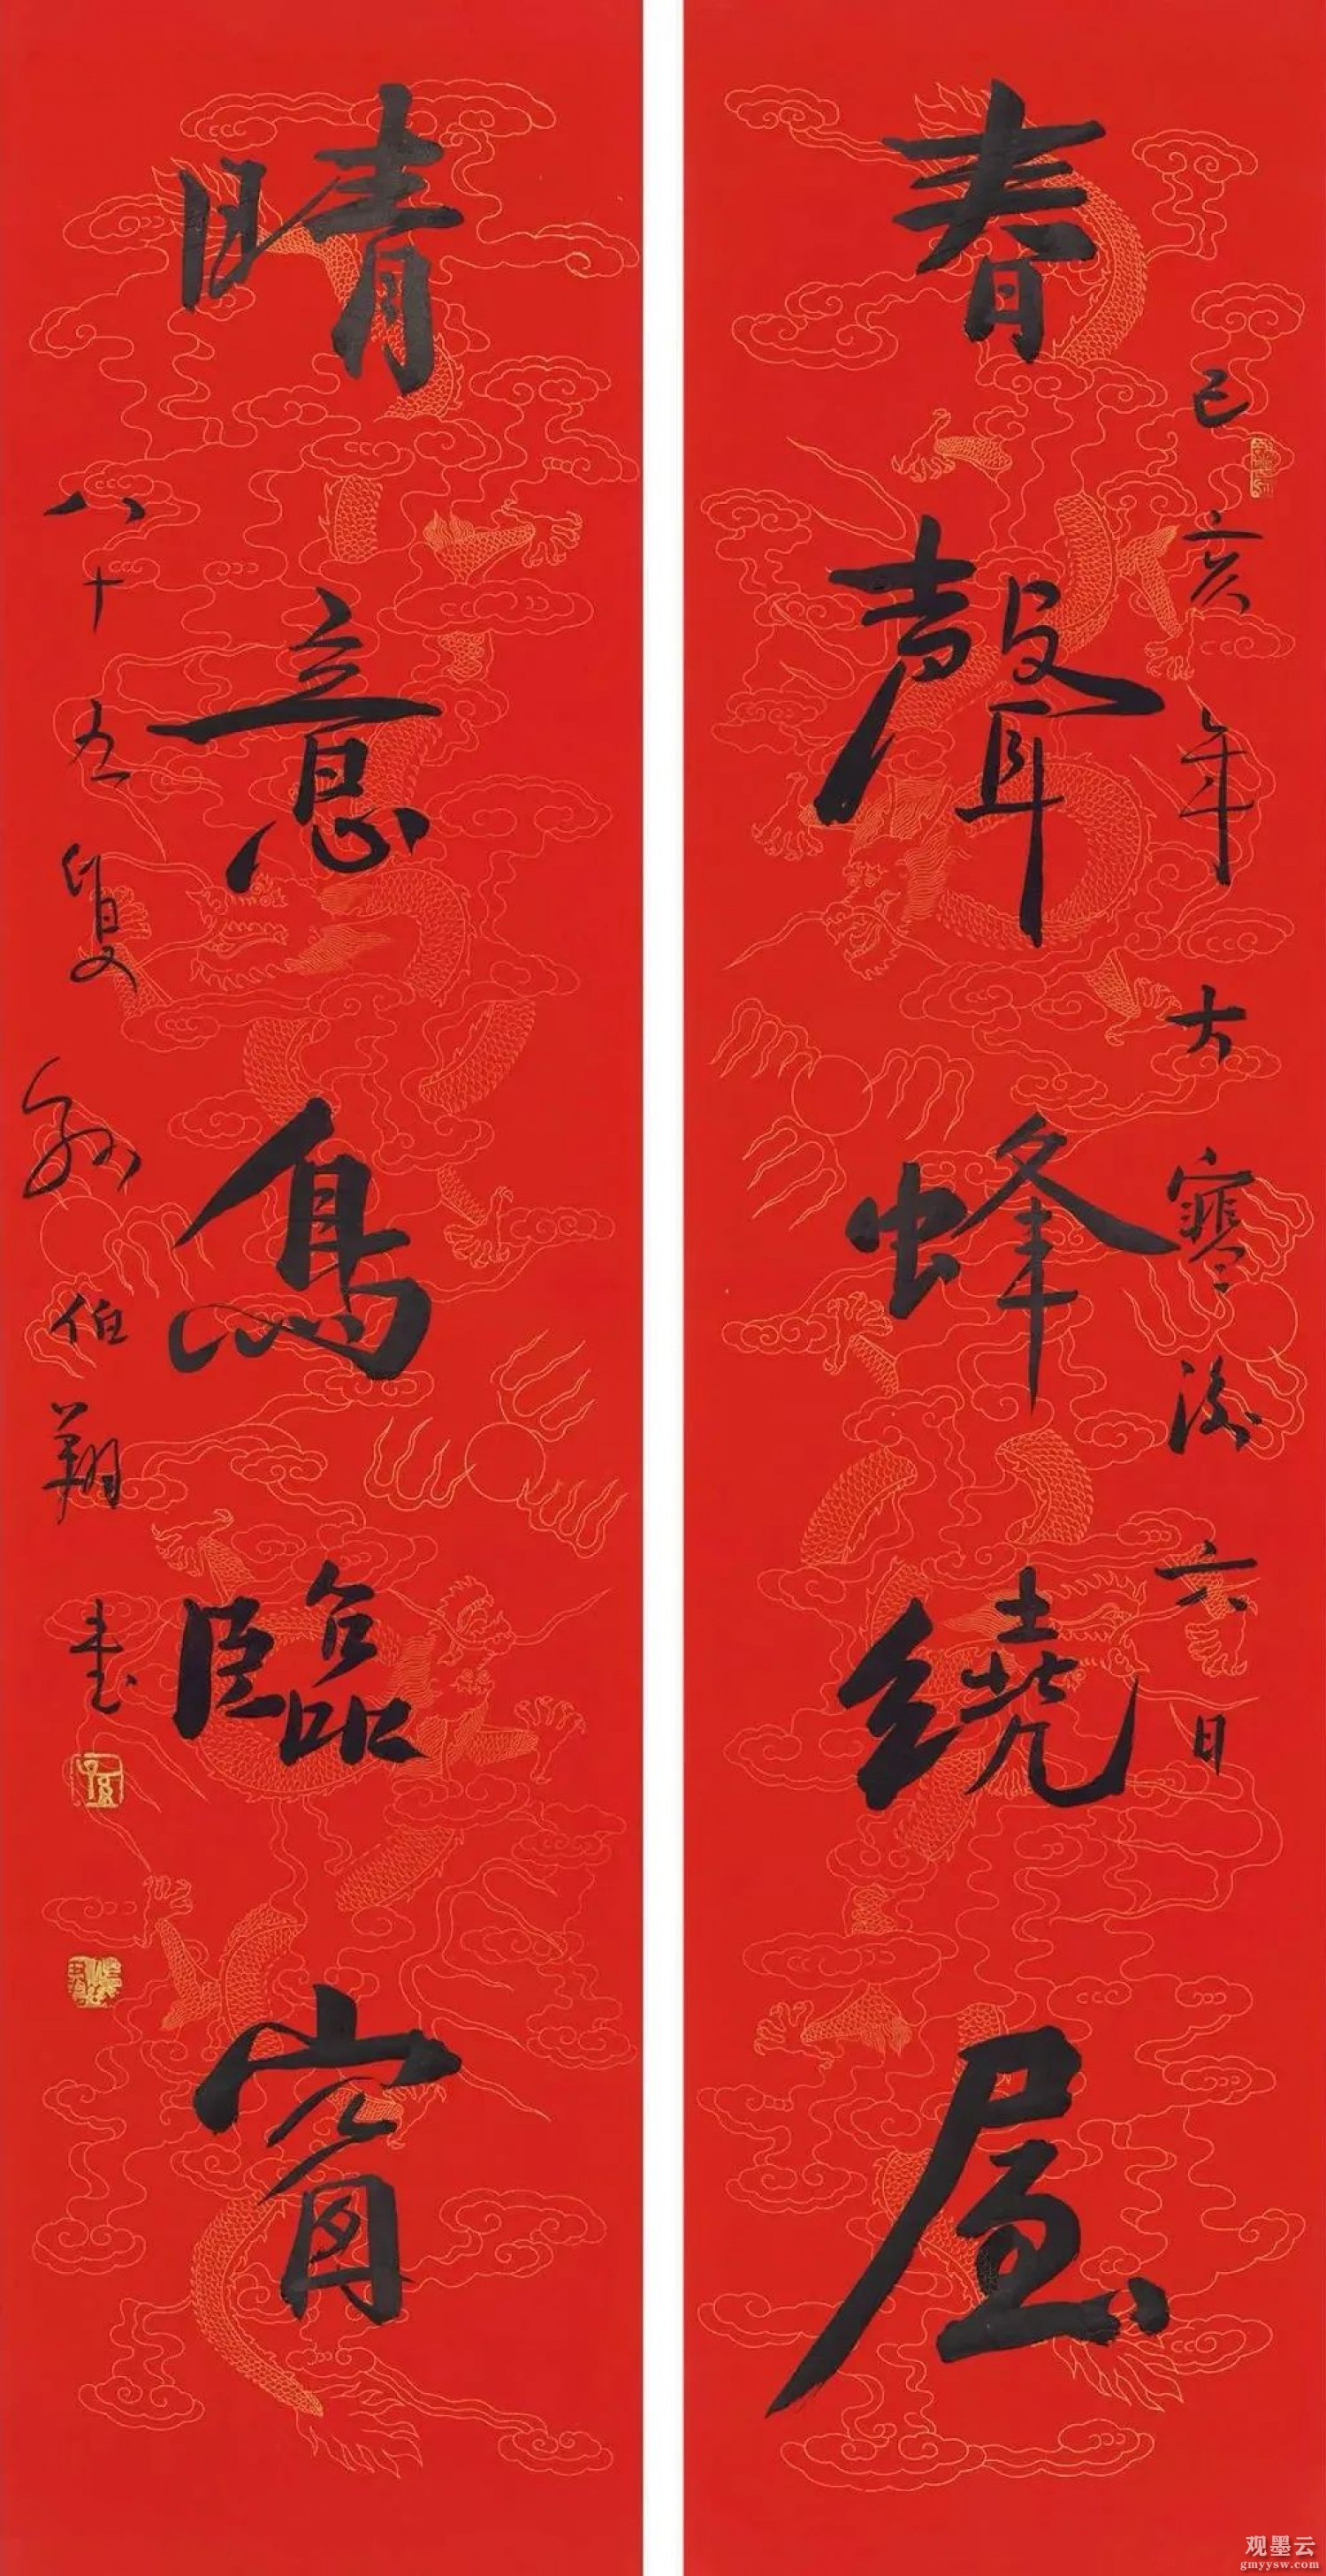 己亥年大寒後六日
春聲蜂繞屋
晴意鳥臨窗
八十五叟孫伯翔書
观墨云
gmyysw.com